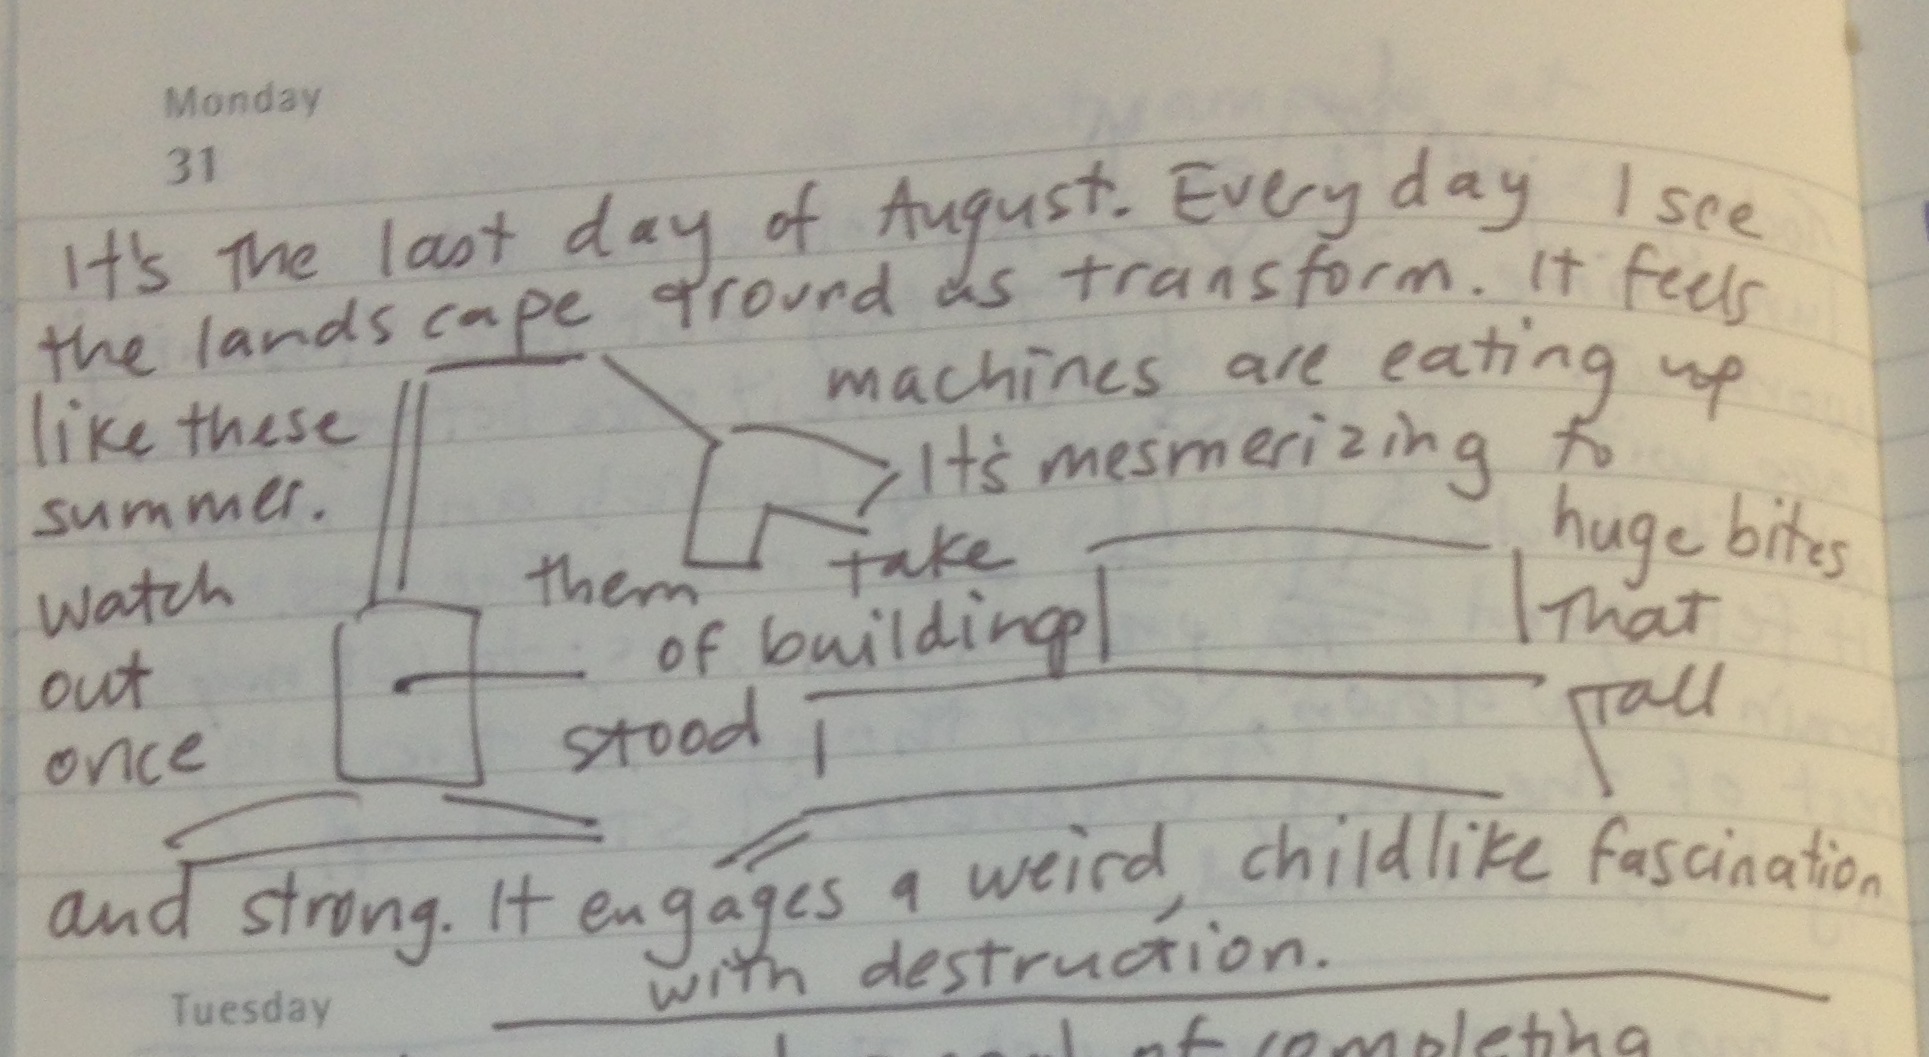 Monday
31
It's the last day of August. Every day I see
the landscape around us transform. It feels
like these machines are eating up
summer. It's mesmerizing to
watch them take huge bites
out of buildings That
once stood tall
and strong. It engages a weird, childlike fascination
with destruction.
Tuesday
of completing